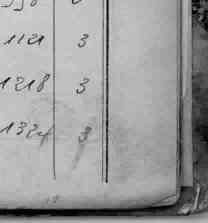 1121 3
1218 3
1324 3